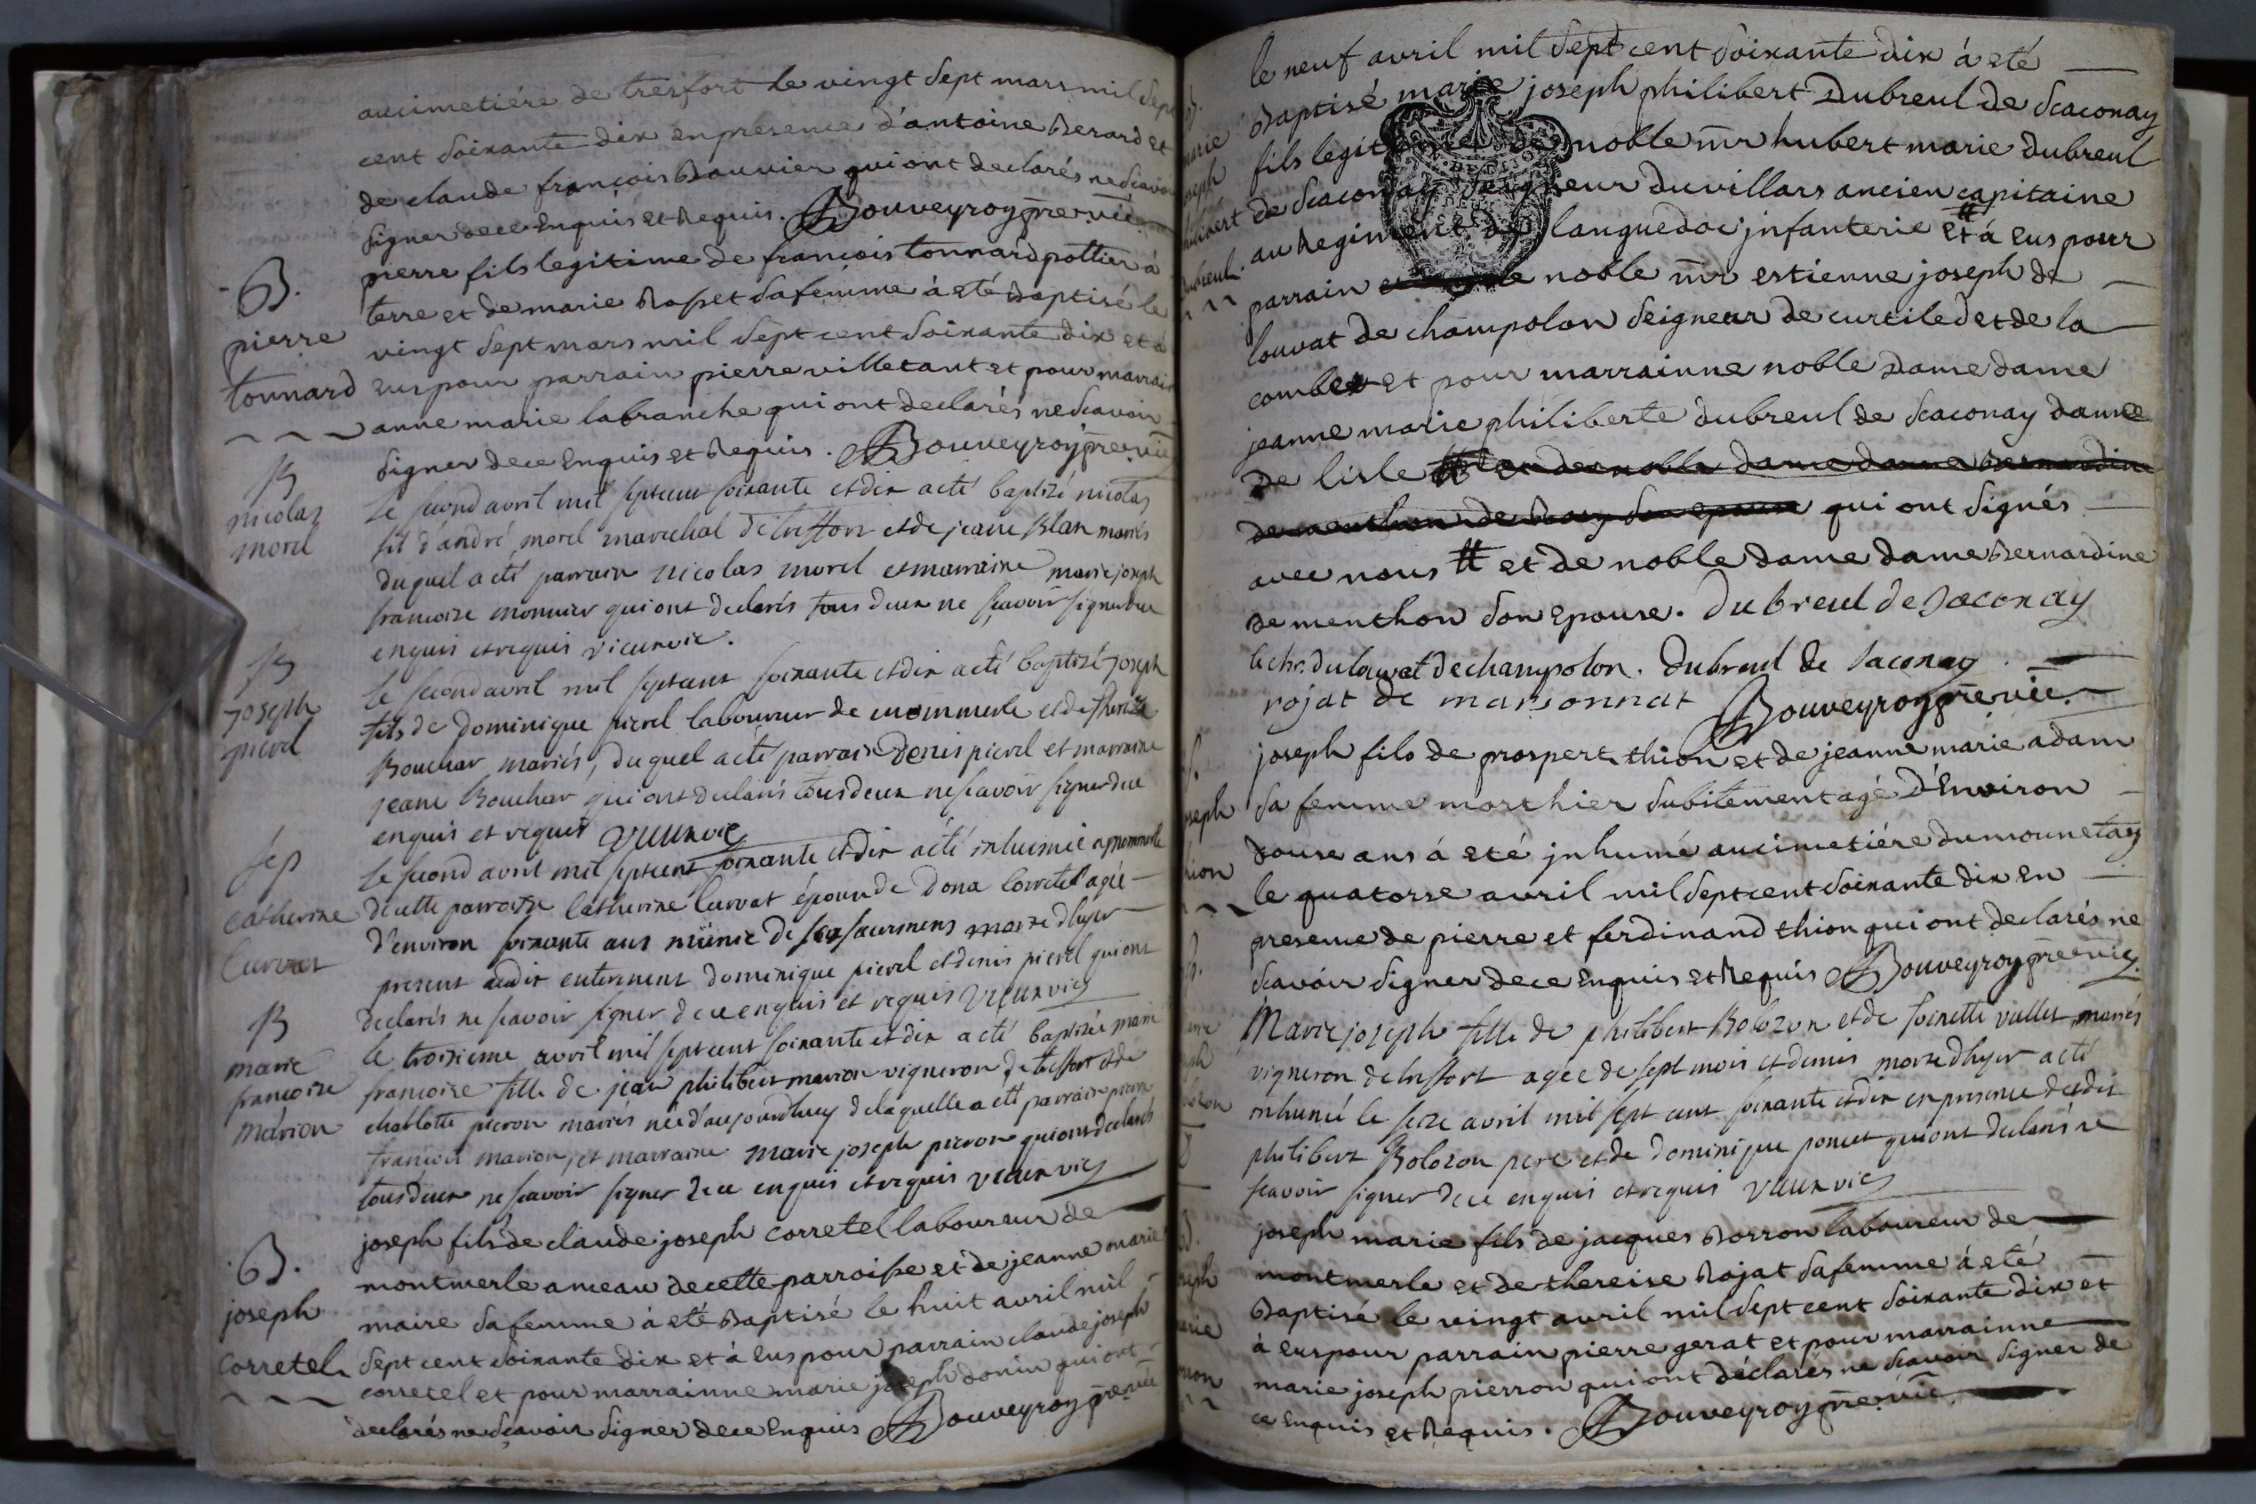 aucimetiére de tresfort le vingt sept mars mil sept
cent soixante dix en presence d'antoine Berard et
de claude françois Bouvier qui ont declarés ne scavoir
signer de ce enquis et Requis. Bouveyroy prê. vic
B.
pierre
tonnard
pierre fils legitime de françois tonnard pottier à
terre et de marie Rosset sa femme à eté Baptisé le
vingt sept mars mil sept cent soixante dix et à
eus pour parrain pierre villetant et pour marrain
anne marie labranche qui ont declarés ne scavoir
signer de ce enquis et Requis. Bouveyroy prê. vic
B
nicolas
morel
le second avril mil sept cent soixante et dix a eté baptizé nicolas
fils d'andré morel marechal de treffort et de jeane Blan mariés
duquel a eté parrain nicolas morel et marraine marie joseph
francoize monnier qui ont declarés tous deux ne scavoir signer de ce
enquis et requis vieux vic.
B
joseph
pierel
le second avril mil sept cent soixante et dix a eté baptizé joseph
fils de dominique pierel laboureur de mommerle et de thereze
Bouchar mariés, duquel a eté parrain Denis pierel et marraine
jeane Bouchar qui ont declarés tous deux ne scavoir signer de ce
enquis et requis vieux vic
sep
catherine
curvat
le second avril mil sept cent soixante et dix a eté inhumée a mommerle
de cette parroisse catherine curvat épouse de dona corretel agée
d'environ soixante ans munie de ses sacremens morte d'hyer
present audit enterrement dominique pierel et denis pierel qui ont
declarés ne scavoir signer de ce enquis et requis vieux vic
B
marie
francoize
marion
le troisieme avril mil sept cent soixante et dix a eté baptizée marie
francoize fille de jean philibert marion vigneron de treffort et de
charlotte picron mariés née d'aujourdhuy de laquelle a eté parrain pierre
francois marion, et marraine marie joseph picron qui ont declarés
tous deux ne scavoir signer de ce enquis et requis vieux vic
B.
joseph
corretel
joseph fils de claude joseph corretel laboureur de
montmerle ameau de cette parroisse et de jeanne marie
maire sa femme à eté Baptisé le huit avril mil
sept cent soixante dix et à eus pour parrain claude joseph
corretel et pour marrainne marie joseph donin qui ont
declarés ne scavoir signer de ce enquis Bouveyroy prê vic
le neuf avril mil sept cent soixante dix à eté
Baptisé marie joseph philibert Dubreul de Scaconay
fils legitime de noble mr hubert marie dubreul
de Scaconay seigneur du villars ancien capitaine
au Regiment de languedoc jnfanterie # et à eus pour
parrain noble mr estienne joseph de
louvat de champolon seigneur de curtiled et de la
combe et pour marrainne noble Dame dame
jeanne marie philiberte dubreul de Scaconay dame
de lisle # et de noble dame dame Bernardine
de menthon de son epouse qui ont signés
avec nous # et de noble dame dame Bernardine
de menthon son epouse. dubreul de Saconay
le chr. du louvat de champolon. dubreul de Saconay
rojat de marsonnat Bouveyroy prê vic.
joseph fils de prospert thion et de jeanne marie adam
sa femme mort hier subitement agé d'Environ
douse ans à eté jnhumé au cimetiére du mounetay
le quatorse avril mil sept cent soixante dix En
presence de pierre et ferdinand thion qui ont declarés ne
scavoir signer de ce enquis et Requis Bouveyroy prê vic.
Marie joseph fille de philibert Bolozon et de foinette vullet mariés
vigneron de treffort agée de sept mois et demis morte d'hyer a eté
inhumée le seze avril mil sept cent soixante et dix en presence dudit
philibert Bolozon pere et de dominique poncet qui ont declarés ne
scavoir signer de ce enquis et requis vieux vic
joseph marie fils de jacques Borron laboureur de
montmerle et de thereise Rojat sa femme à eté
Baptisé le vingt avril mil sept cent soixante dix et
à eus pour parrain pierre gerat et pour marrainne
marie joseph pierron qui ont déclarés ne scavoir signer de
ce Enquis et Requis. Bouveyroy prê. vic.